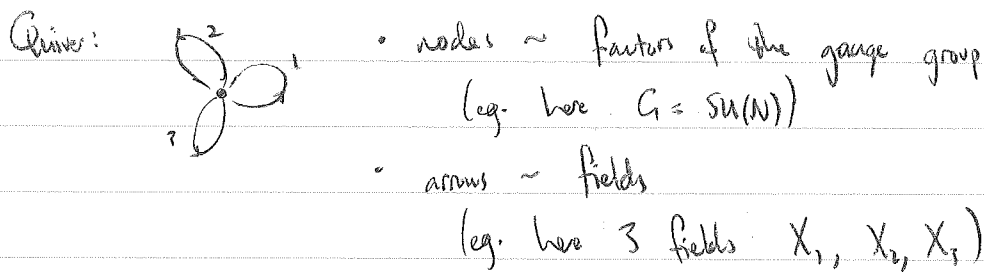 Quiver: 2 • nodes ~ factors of the gauge group
1
(eg. here G = SU(N))
3
• arrows ~ fields
(eg. here 3 fields X₁, X₂, X₃)